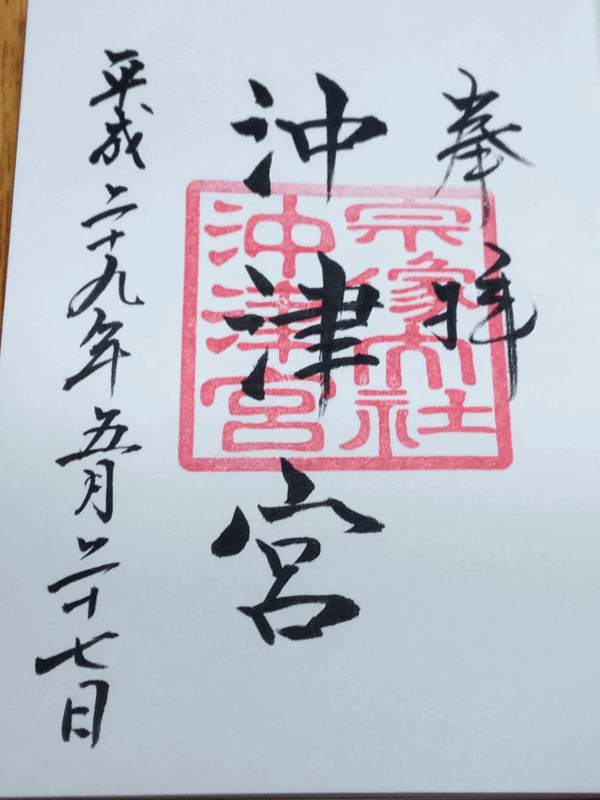 奉拝
宗象大社
沖津宮
沖津宮
平成二十九年五月二十七日